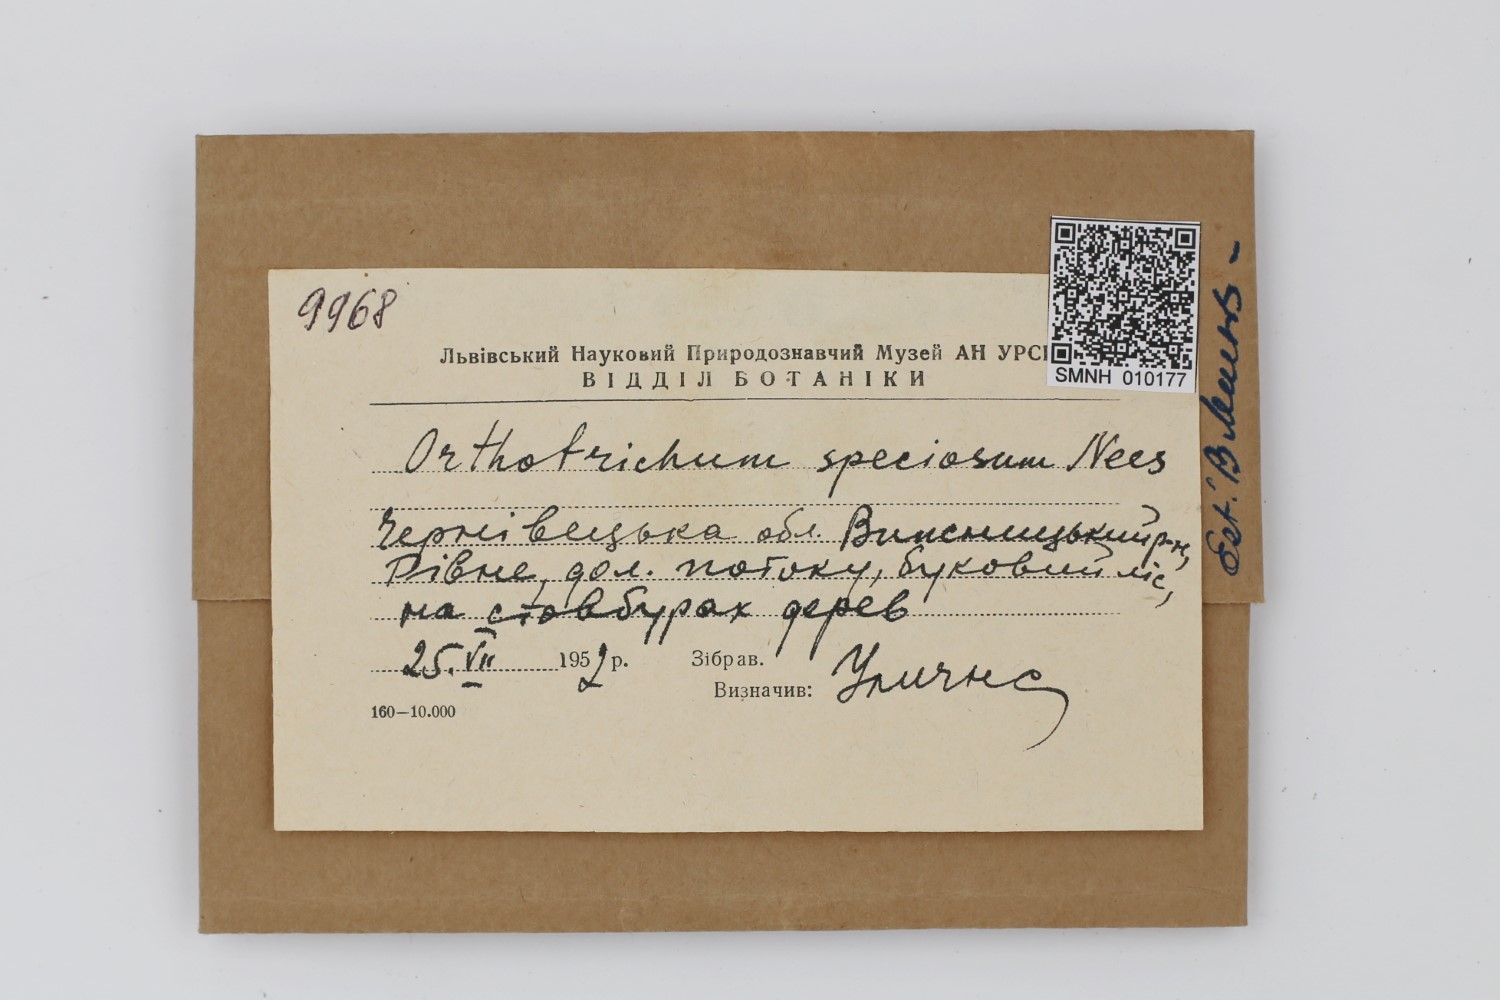 9968
Львівський Науковий Природознавчий Музей АН УРС
ВІДДІЛ БОТАНІКИ
SMNH 010177
Orthotrichum speciosum Nees
Чернівецька обл. Вижницький р-н,
Рівне, дол. потоку, буковий ліс,
на стовбурах дерев
25.VII 1952 р. Зібрав.
Визначив: Улична
160—10.000
Est. В